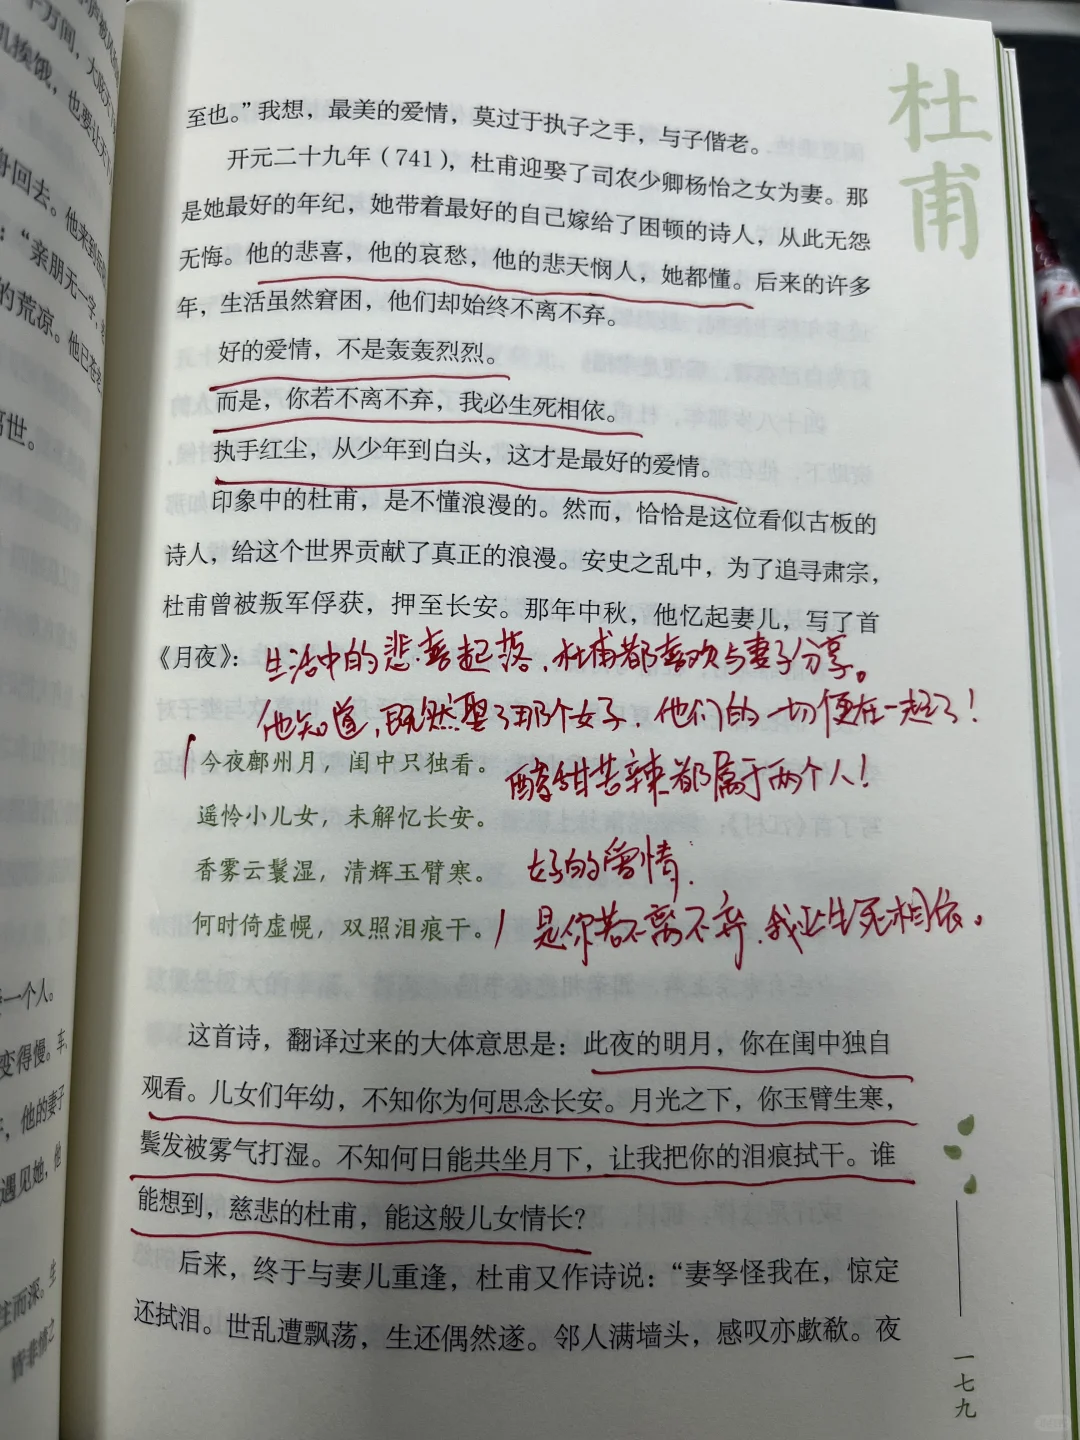 杜甫
至也。”我想，最美的爱情，莫过于执子之手，与子偕老。
开元二十九年（741），杜甫迎娶了司农少卿杨怡之女为妻。那
是她最好的年纪，她带着最好的自己嫁给了困顿的诗人，从此无怨
无悔。他的悲喜，他的哀愁，他的悲天悯人，她都懂。后来的许多
年，生活虽然窘困，他们却始终不离不弃。
好的爱情，不是轰轰烈烈。
而是，你若不离不弃，我必生死相依。
执手红尘，从少年到白头，这才是最好的爱情。
印象中的杜甫，是不懂浪漫的。然而，恰恰是这位看似古板的
诗人，给这个世界贡献了真正的浪漫。安史之乱中，为了追寻肃宗，
杜甫曾被叛军俘获，押至长安。那年中秋，他忆起妻儿，写了首
《月夜》：
生活中的悲喜起落，杜甫都喜欢与妻子分享。
他知道，既然娶了那个女子，他们的一切便在一起了！
酸甜苦辣都属于两个人！
今夜鄜州月，闺中只独看。
遥怜小儿女，未解忆长安。
香雾云鬟湿，清辉玉臂寒。
何时倚虚幌，双照泪痕干。
好的爱情，
是你若不离不弃，我必生死相依。
这首诗，翻译过来的大体意思是：此夜的明月，你在闺中独自
观看。儿女们年幼，不知你为何思念长安。月光之下，你玉臂生寒，
鬓发被雾气打湿。不知何日能共坐月下，让我把你的泪痕拭干。谁
能想到，慈悲的杜甫，能这般儿女情长？
后来，终于与妻儿重逢，杜甫又作诗说：“妻孥怪我在，惊定
还拭泪。世乱遭飘荡，生还偶然遂。邻人满墙头，感叹亦歔欷。夜
一七九